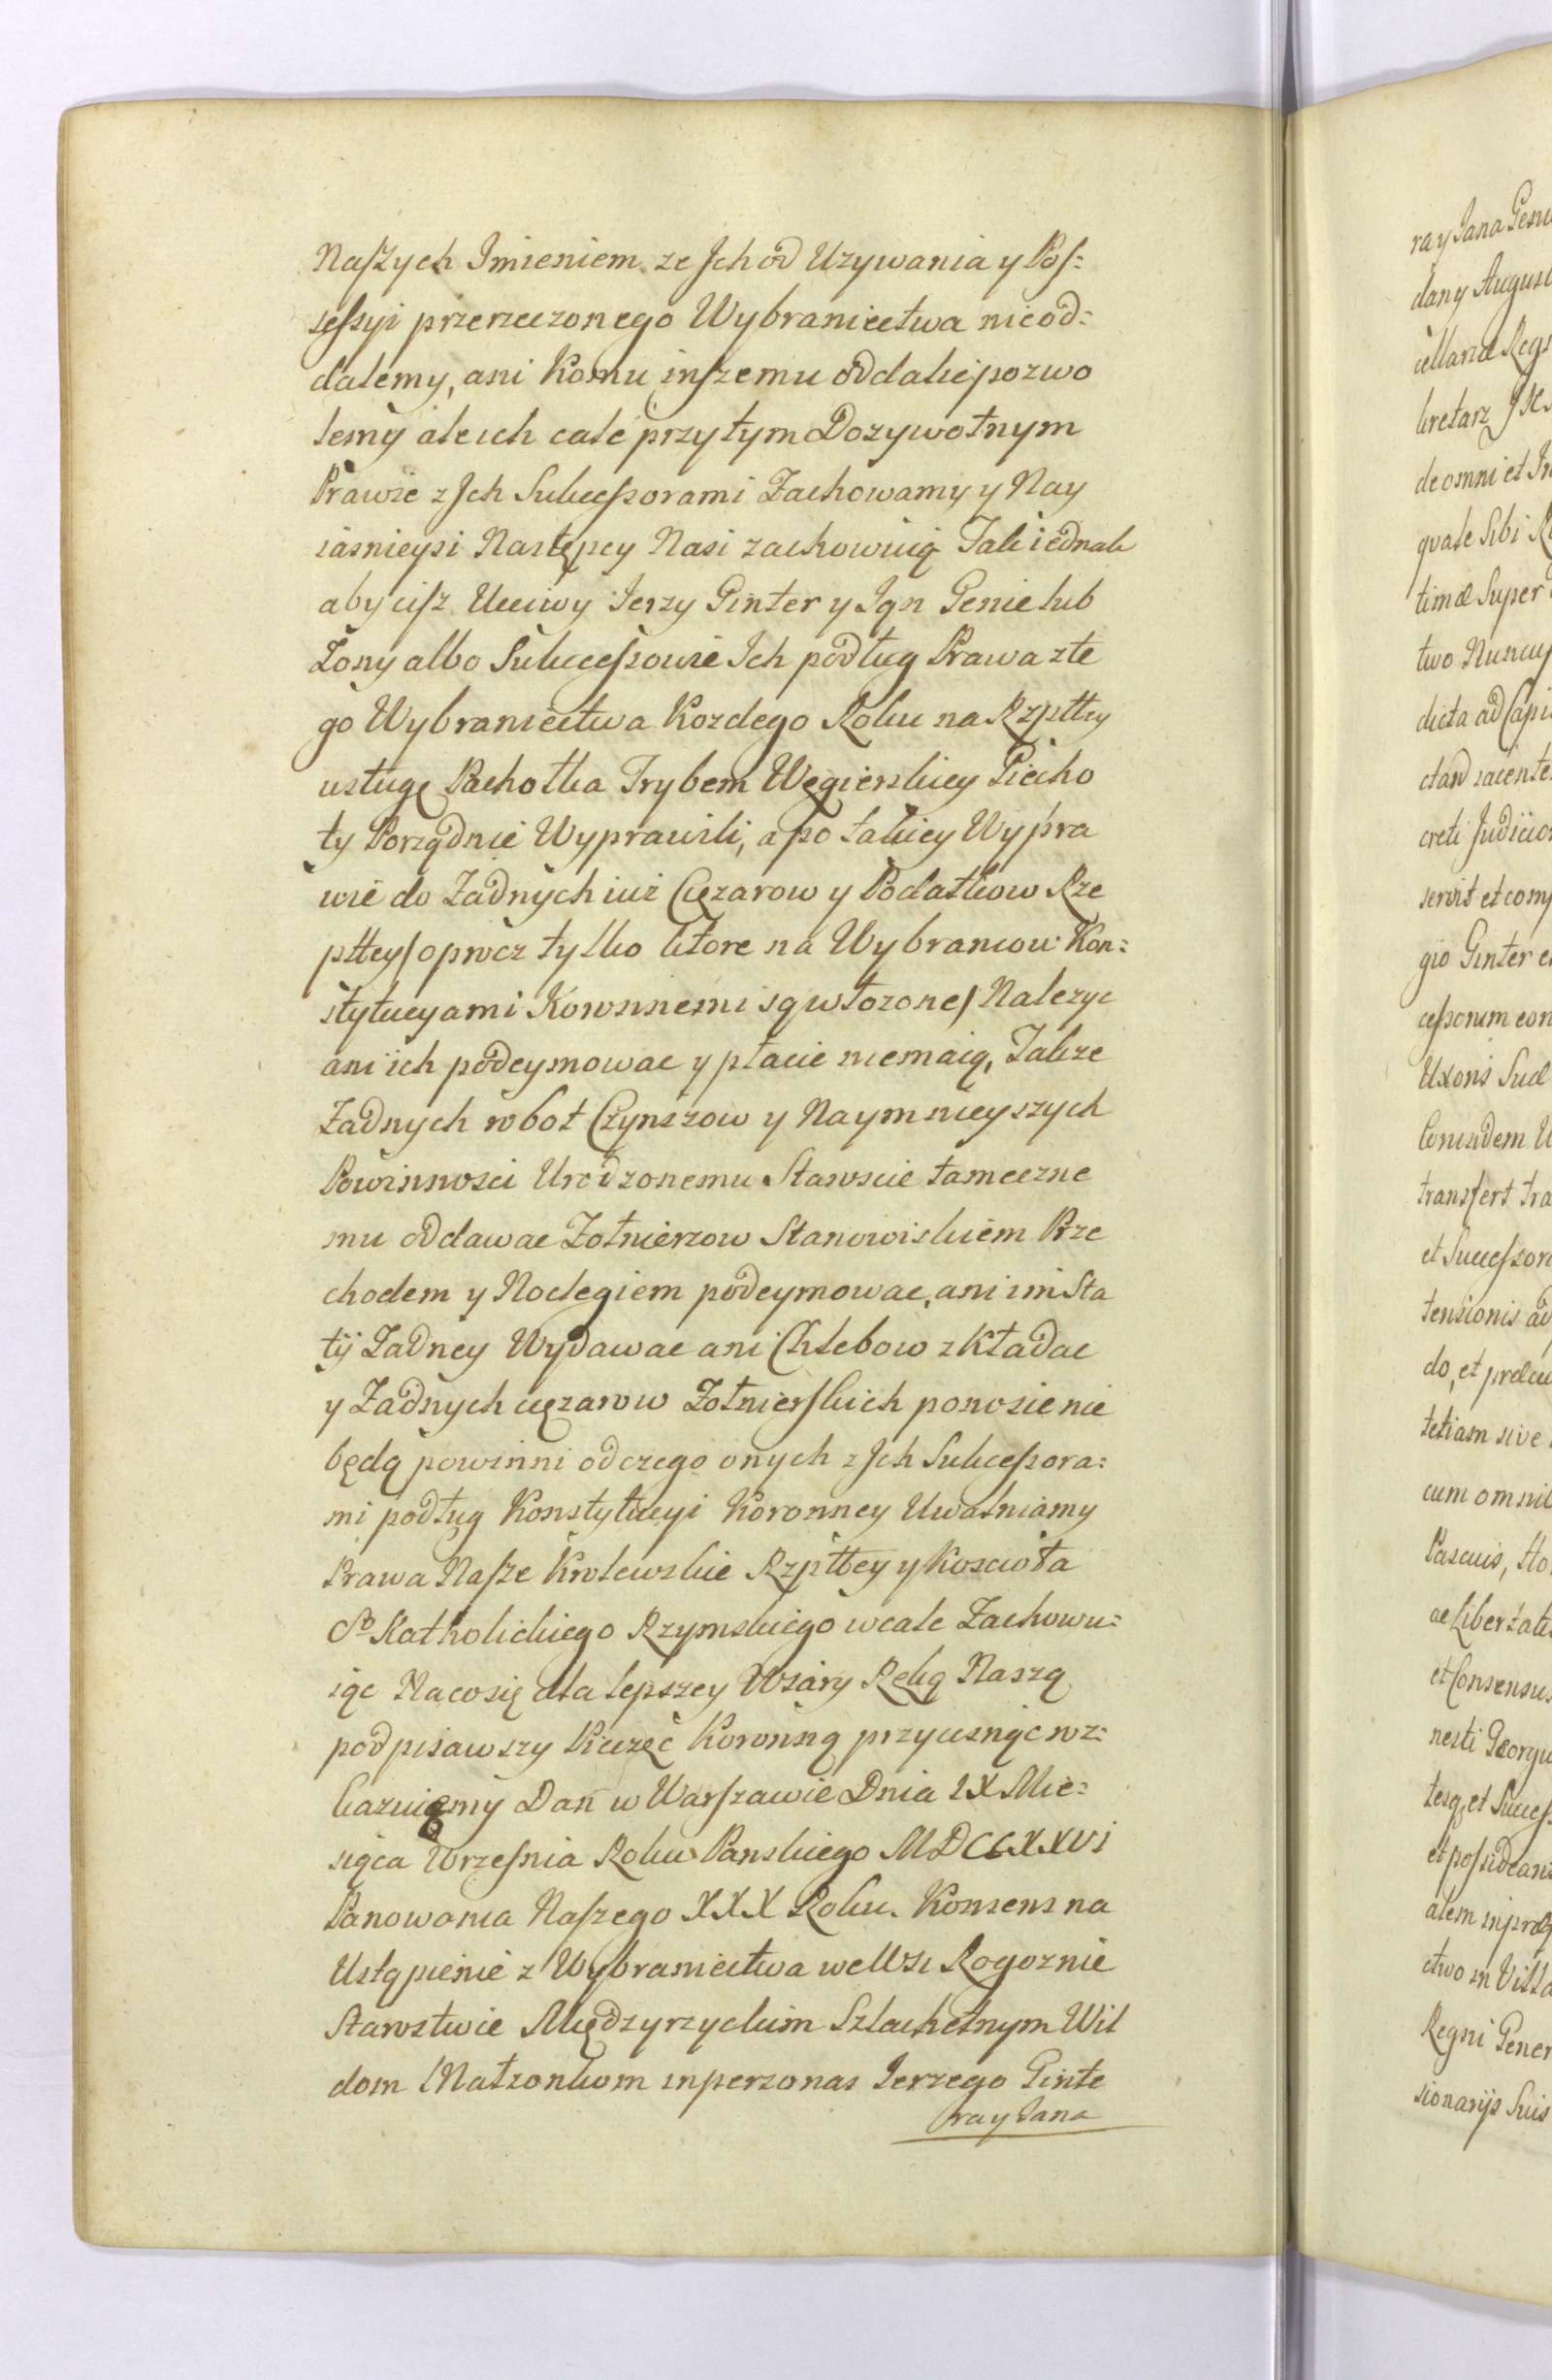 Naszych Imieniem ze Jch od Uzywania y Pos:
sessyi przerzeczonego Wybraniectwa nie od:
dalemy, ani Komu inszemu oddalić pozwo
lemy ale ich cale przy tym Dozywotnym
Prawie z Jch Sukcessorami Zachowamy y Nay
iasnieysi Następcy Nasi zachowaią Tak iednak
aby cisz Ucciwy Jerzy Ginter y Jan Genie lub
Zony albo Sukcessowie Ich podług Prawa z te
go Wybraniectwa Kozdego Roku na Rzpltey
usługę Pachołka Trybem Węgierskiey Piecho
ty Porządnie Wyprawili, a po takiey Wypra
wie do Zadnych iuż Cięzarow y Podatkow Rze
pltey/oprocz tylko ktore na Wybrancow Kon:
stytucyami Koronnemi są włozone/ Nalezyc
ani ich podeymowac y płacic niemaią, Takze
Zadnych robot Czynszow y Naymnieyszych
Powinnosci Urodzonemu Staroscie tameczne
mu oddawac Zołnierzow Stanowiskiem Prze
chodem y Noclegiem podeymowac, ani im Sta
tij Zadney Wydawac ani Chlebow zkładac
y Zadnych cięzarow Zołnierskich ponosic nie
będą powinni od czego onych z Jch Sukcessora:
mi podług Konstytucyi Koronney Uwalniamy
Prawa Nasze Krolewskie Rzpltey y Koscioła
So Katholickiego Rzymskiego wcale Zachowu:
iąc Na co się dla lepszey Wiary Ręką Naszą
podpisawszy Pieczęć Koronną przycisnąc roz:
kazuięmy Dan w Warszawie Dnia IX Mie:
siąca Wrzesnia Roku Panskiego MDCCXXVI
Panowania Naszego XXX Roku. Konsens na
Ustąpienie z Wybraniectwa we Wsi Rogoznie
Starostwie Międzyrzyckim Szlachetnym Wil
dom Małzonkom in personas Jerzego Ginte
ra y Jana
ra y Jana
dany
de omni et
timæ Super
two
dicta ad
creti
servit et
gio Ginter
Uxoris Suæ
transfert
et
tensionis ad
do, et
tetiam sive
cum
Pascuis,
et Consensus
et
ctwo in Villa
Regni
sionarijs Suis